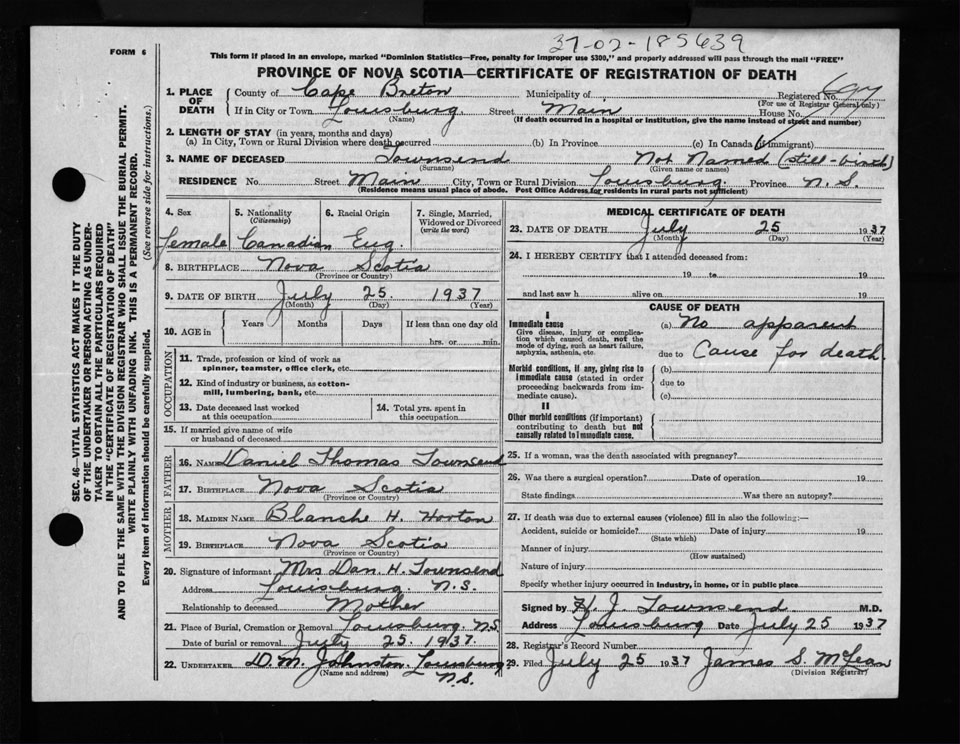 37-02-185639
FORM 6
This form if placed in an envelope, marked "Dominion Statistics—Free, penalty for improper use $300," and properly addressed will pass through the mail "FREE"
PROVINCE OF NOVA SCOTIA—CERTIFICATE OF REGISTRATION OF DEATH
1. PLACE OF DEATH
County of Cape Breton Municipality of Registered No.
(For use of Registrar General only)
If in City or Town Louisburg Street Main House No.
(Name) (If death occurred in a hospital or institution, give the name instead of street and number)
2. LENGTH OF STAY (in years, months and days)
(a) In City, Town or Rural Division where death occurred (b) In Province (c) In Canada (if immigrant)
3. NAME OF DECEASED Townsend Not Named (still-birth)
(Surname) (Given name or names)
RESIDENCE No. Street Main City, Town or Rural Division Louisburg Province N.S.
(Residence means usual place of abode. Post Office Address for residents in rural parts not sufficient)
4. Sex 5. Nationality (Citizenship) 6. Racial Origin 7. Single, Married, Widowed or Divorced (write the word)
Female Canadian Eng.
8. BIRTHPLACE Nova Scotia
(Province or Country)
9. DATE OF BIRTH July 25. 1937
(Month) (Day) (Year)
10. AGE in Years Months Days If less than one day old
hrs. or min.
OCCUPATION
11. Trade, profession or kind of work as
spinner, teamster, office clerk, etc.
12. Kind of industry or business, as cotton-
mill, lumbering, bank, etc.
13. Date deceased last worked
at this occupation
14. Total yrs. spent in
this occupation
15. If married give name of wife
or husband of deceased
FATHER
16. NAME Daniel Thomas Townsend
17. BIRTHPLACE Nova Scotia
(Province or Country)
MOTHER
18. MAIDEN NAME Blanche H. Horton
19. BIRTHPLACE Nova Scotia
(Province or Country)
20. Signature of informant Mrs Dan. H. Townsend
Address Louisburg. N.S.
Relationship to deceased Mother
21. Place of Burial, Cremation or Removal Louisburg. N.S.
Date of burial or removal July 25. 1937.
22. UNDERTAKER D. M. Johnston. Louisburg
(Name and address) N.S.
MEDICAL CERTIFICATE OF DEATH
23. DATE OF DEATH July 25 1937
(Month) (Day) (Year)
24. I HEREBY CERTIFY that I attended deceased from:
19 to 19
and last saw h alive on 19
CAUSE OF DEATH
I
Immediate cause
Give disease, injury or complica-
tion which caused death, not the
mode of dying, such as heart failure,
asphyxia, asthenia, etc.
(a) No apparent
due to Cause for death
Morbid conditions, if any, giving rise to
immediate cause (stated in order
proceeding backwards from im-
mediate cause).
(b)
due to
(c)
II
Other morbid conditions (if important)
contributing to death but not
causally related to immediate cause.
25. If a woman, was the death associated with pregnancy?
26. Was there a surgical operation? Date of operation 19
State findings Was there an autopsy?
27. If death was due to external causes (violence) fill in also the following:—
Accident, suicide or homicide? Date of injury 19
(State which)
Manner of injury
(How sustained)
Nature of injury
Specify whether injury occurred in industry, in home, or in public place
Signed by H. J. Townsend M.D.
Address Louisburg Date July 25 1937
28. Registrar's Record Number
29. Filed July 25 1937 James S. McLean
(Division Registrar)
SEC. 46—VITAL STATISTICS ACT MAKES IT THE DUTY
OF THE UNDERTAKER OR PERSON ACTING AS UNDER-
TAKER TO OBTAIN ALL THE PARTICULARS REQUIRED
IN THE "CERTIFICATE OF REGISTRATION OF DEATH"
AND TO FILE THE SAME WITH THE DIVISION REGISTRAR WHO SHALL ISSUE THE BURIAL PERMIT.
WRITE PLAINLY WITH UNFADING INK. THIS IS A PERMANENT RECORD.
Every item of information should be carefully supplied. (See reverse side for instructions.)